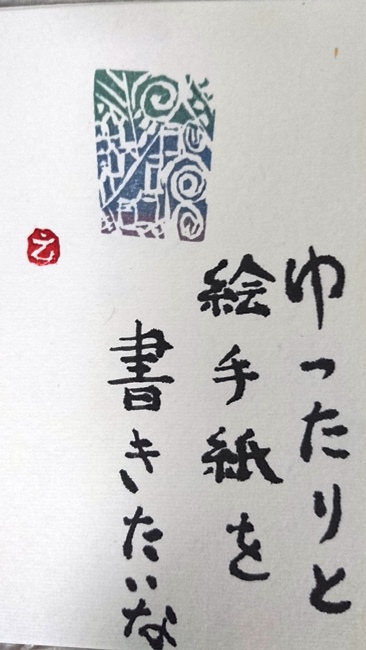 ゆったりと
絵手紙を
書きたいな
え